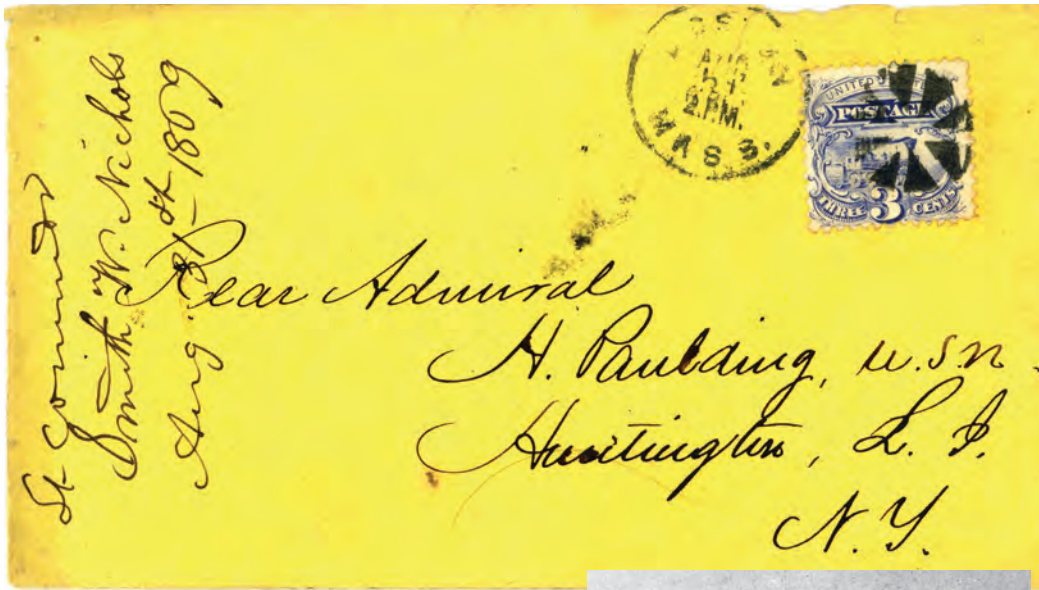 Lt Commdr
Smith W. Nichols
Aug. 31st 1869
AUG
2.PM.
MASS.
UNITED
POSTAGE
THREE 3 CENTS
Rear Admiral
H. Paulding, U.S.N.
Huntington, L. I.
N. Y.